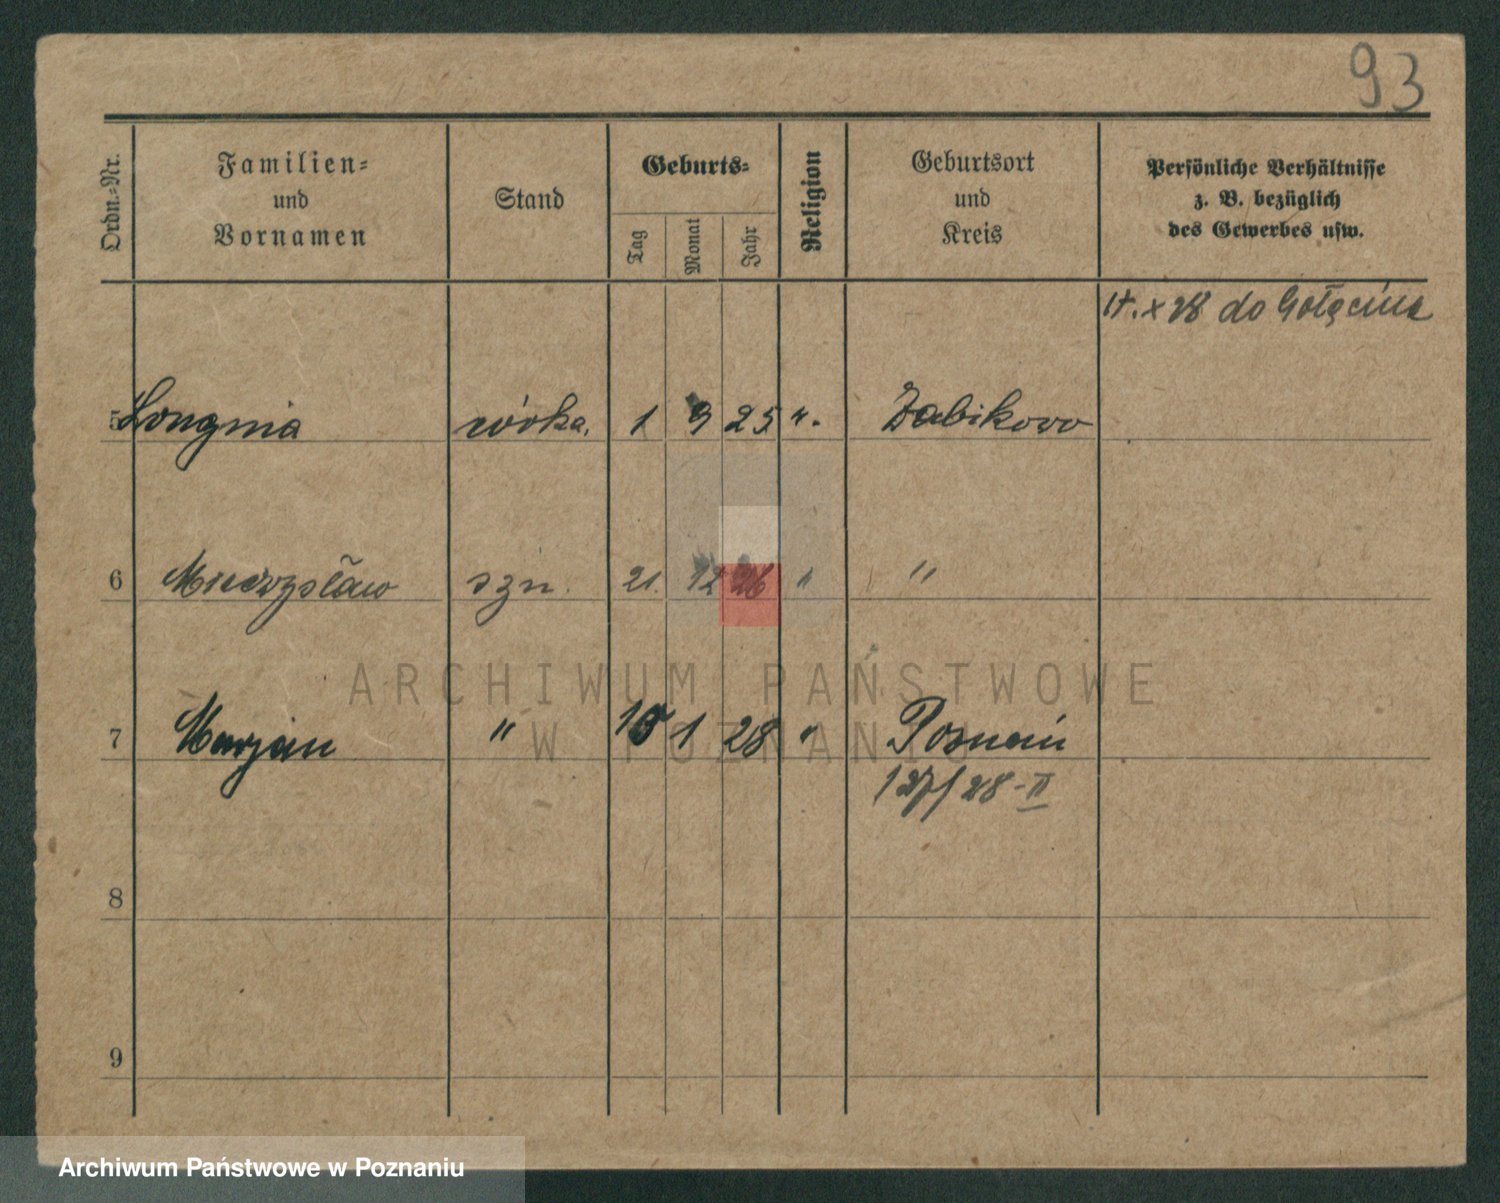 93
Ordn.-Nr.
Familien-
und
Vornamen
Stand
Geburts-
Tag
Monat
Jahr
Religion
Geburtsort
und
Kreis
Persönliche Verhältnisse
z. B. bezüglich
des Gewerbes usw.
do Gołęcina
5 Longina córka. 1 9 25 ". Żabikowo
6 Mieczysław syn. 21. 12 26 " "
ARCHIWUM PAŃSTWOWE
W POZNANIU
7 Marjan " 10 1 28 " Poznań
127/28-II
8
9
Archiwum Państwowe w Poznaniu